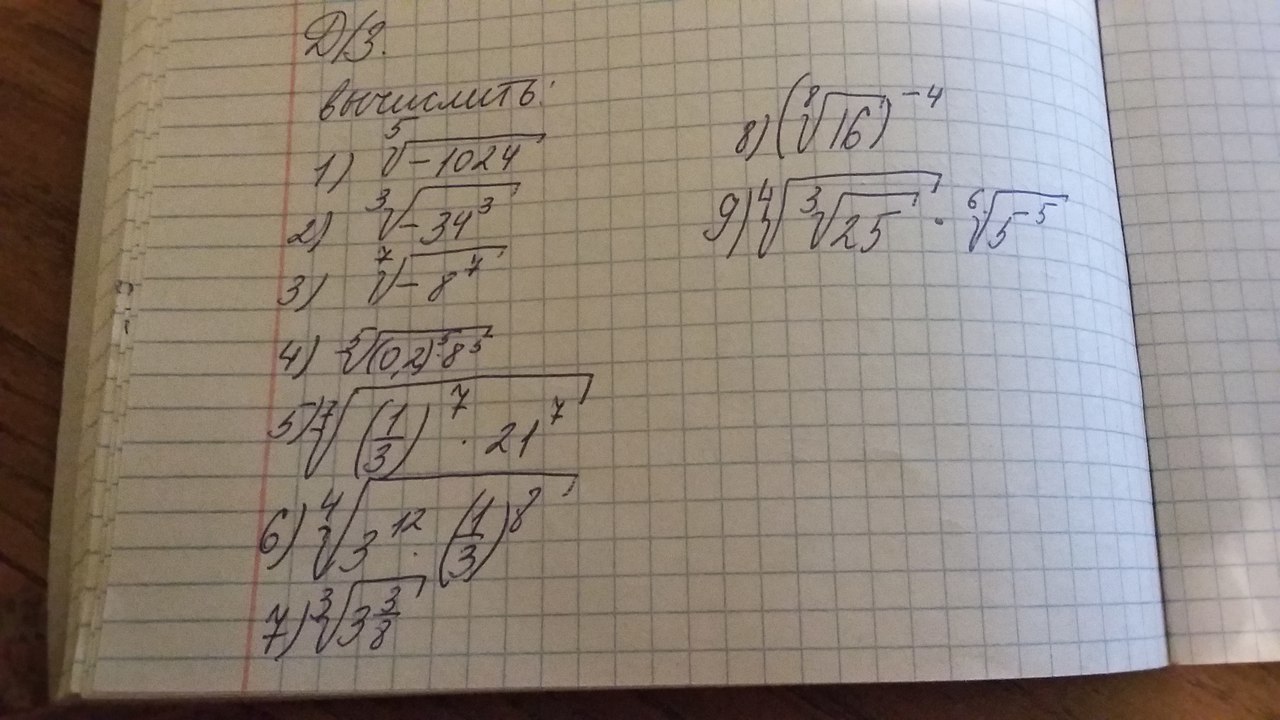 Д/З.
вычислить:
1) ⁵√-1024
2) ³√-34³
3) ⁷√-8⁷
4) ⁵√(0,2)⁵·8⁵
5) ⁷√(1/3)⁷ · 21⁷
6) ⁴√3¹² · (1/3)⁸
7) ³√3 3/8
8) (⁸√16)⁻⁴
9) ⁴√³√25 · ⁶√5⁻⁵